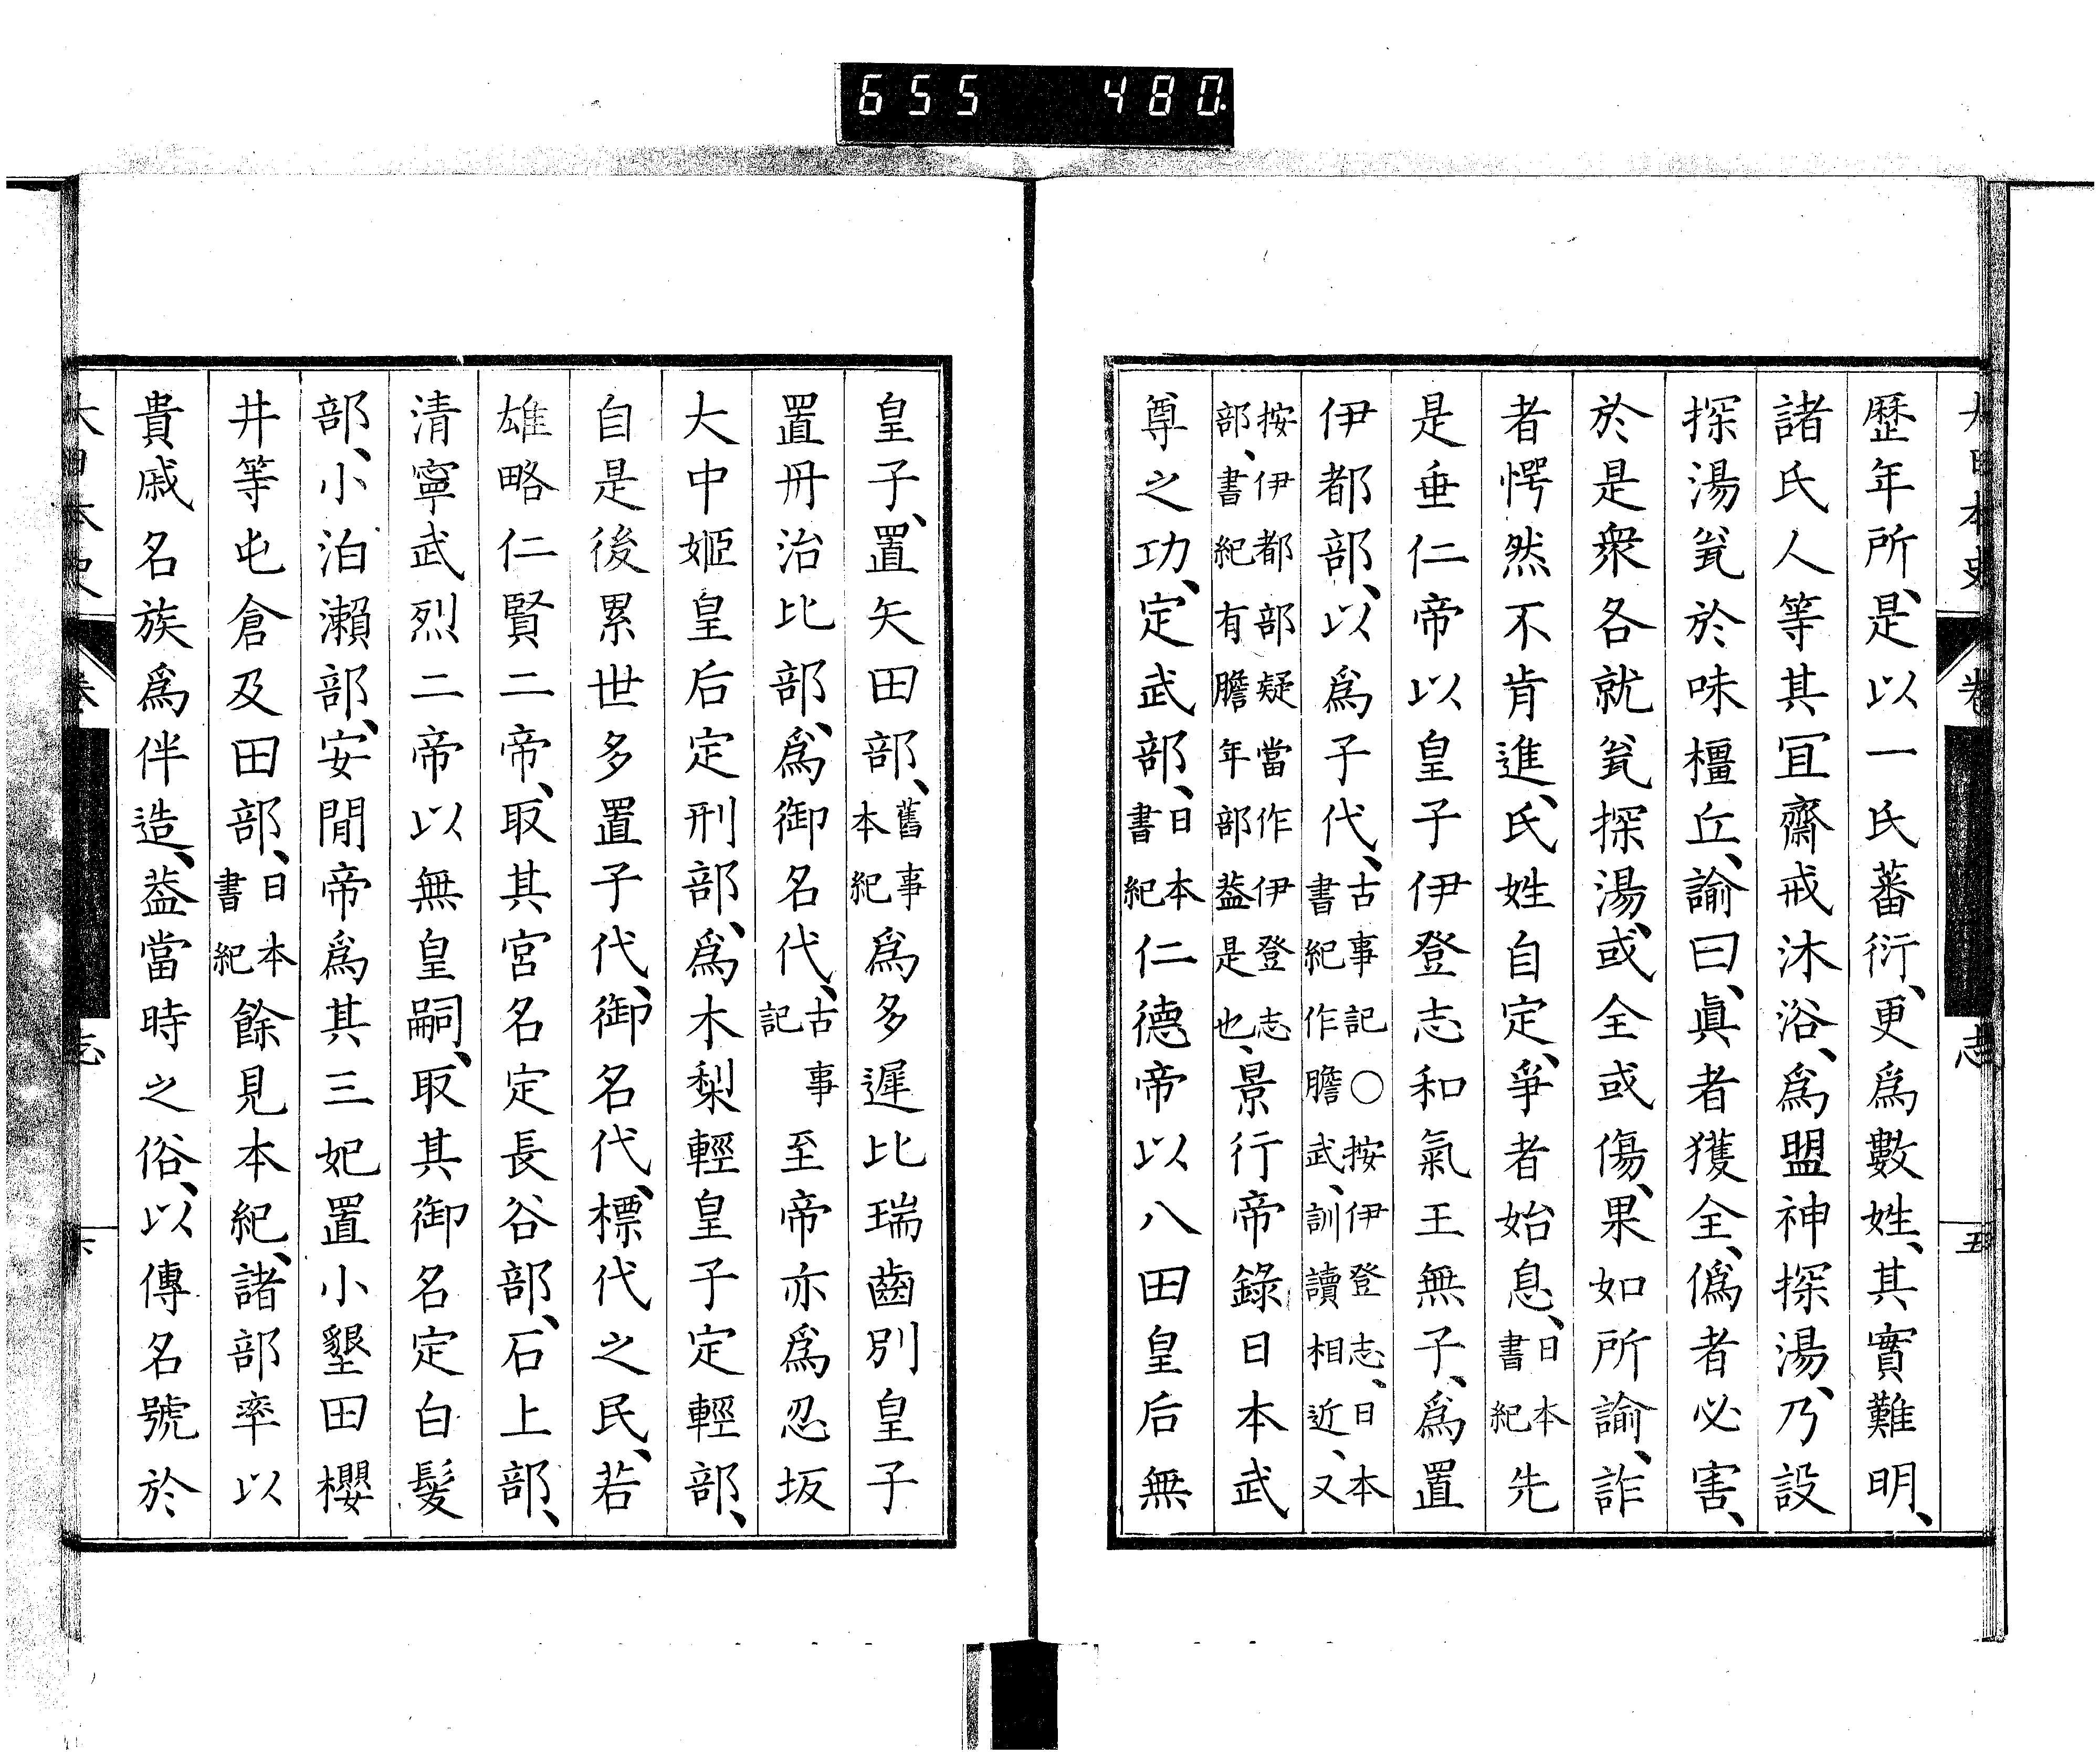 655 480.
歷年所、是以一氏蕃衍、更爲數姓、其實難明、
諸氏人等其宜齋戒沐浴、爲盟神探湯、乃設
探湯瓮於味橿丘、諭曰、眞者獲全、僞者必害、
於是衆各就瓮探湯、或全或傷、果如所諭、詐
者愕然不肯進、氏姓自定、爭者始息、日本書紀先
是垂仁帝以皇子伊登志和氣王無子、爲置
伊都部、以爲子代、古事記○按伊登志、日本書紀作膽武、訓讀相近、又
按伊都部疑當作伊登志部、書紀有膽年部蓋是也、景行帝錄日本武
尊之功、定武部、日本書紀仁德帝以八田皇后無
大日本史 卷 志 五
皇子、置矢田部、舊事本紀爲多遲比瑞齒別皇子
置丹治比部、爲御名代、古事記至帝亦爲忍坂
大中姬皇后定刑部、爲木梨輕皇子定輕部、
自是後累世多置子代、御名代、標代之民、若
雄略仁賢二帝、取其宮名定長谷部、石上部、
清寧武烈二帝以無皇嗣、取其御名定白髮
部、小泊瀨部、安閒帝爲其三妃置小墾田櫻
井等屯倉及田部、日本書紀餘見本紀、諸部率以
貴戚名族爲伴造、蓋當時之俗、以傳名號於
大日本史 卷 志